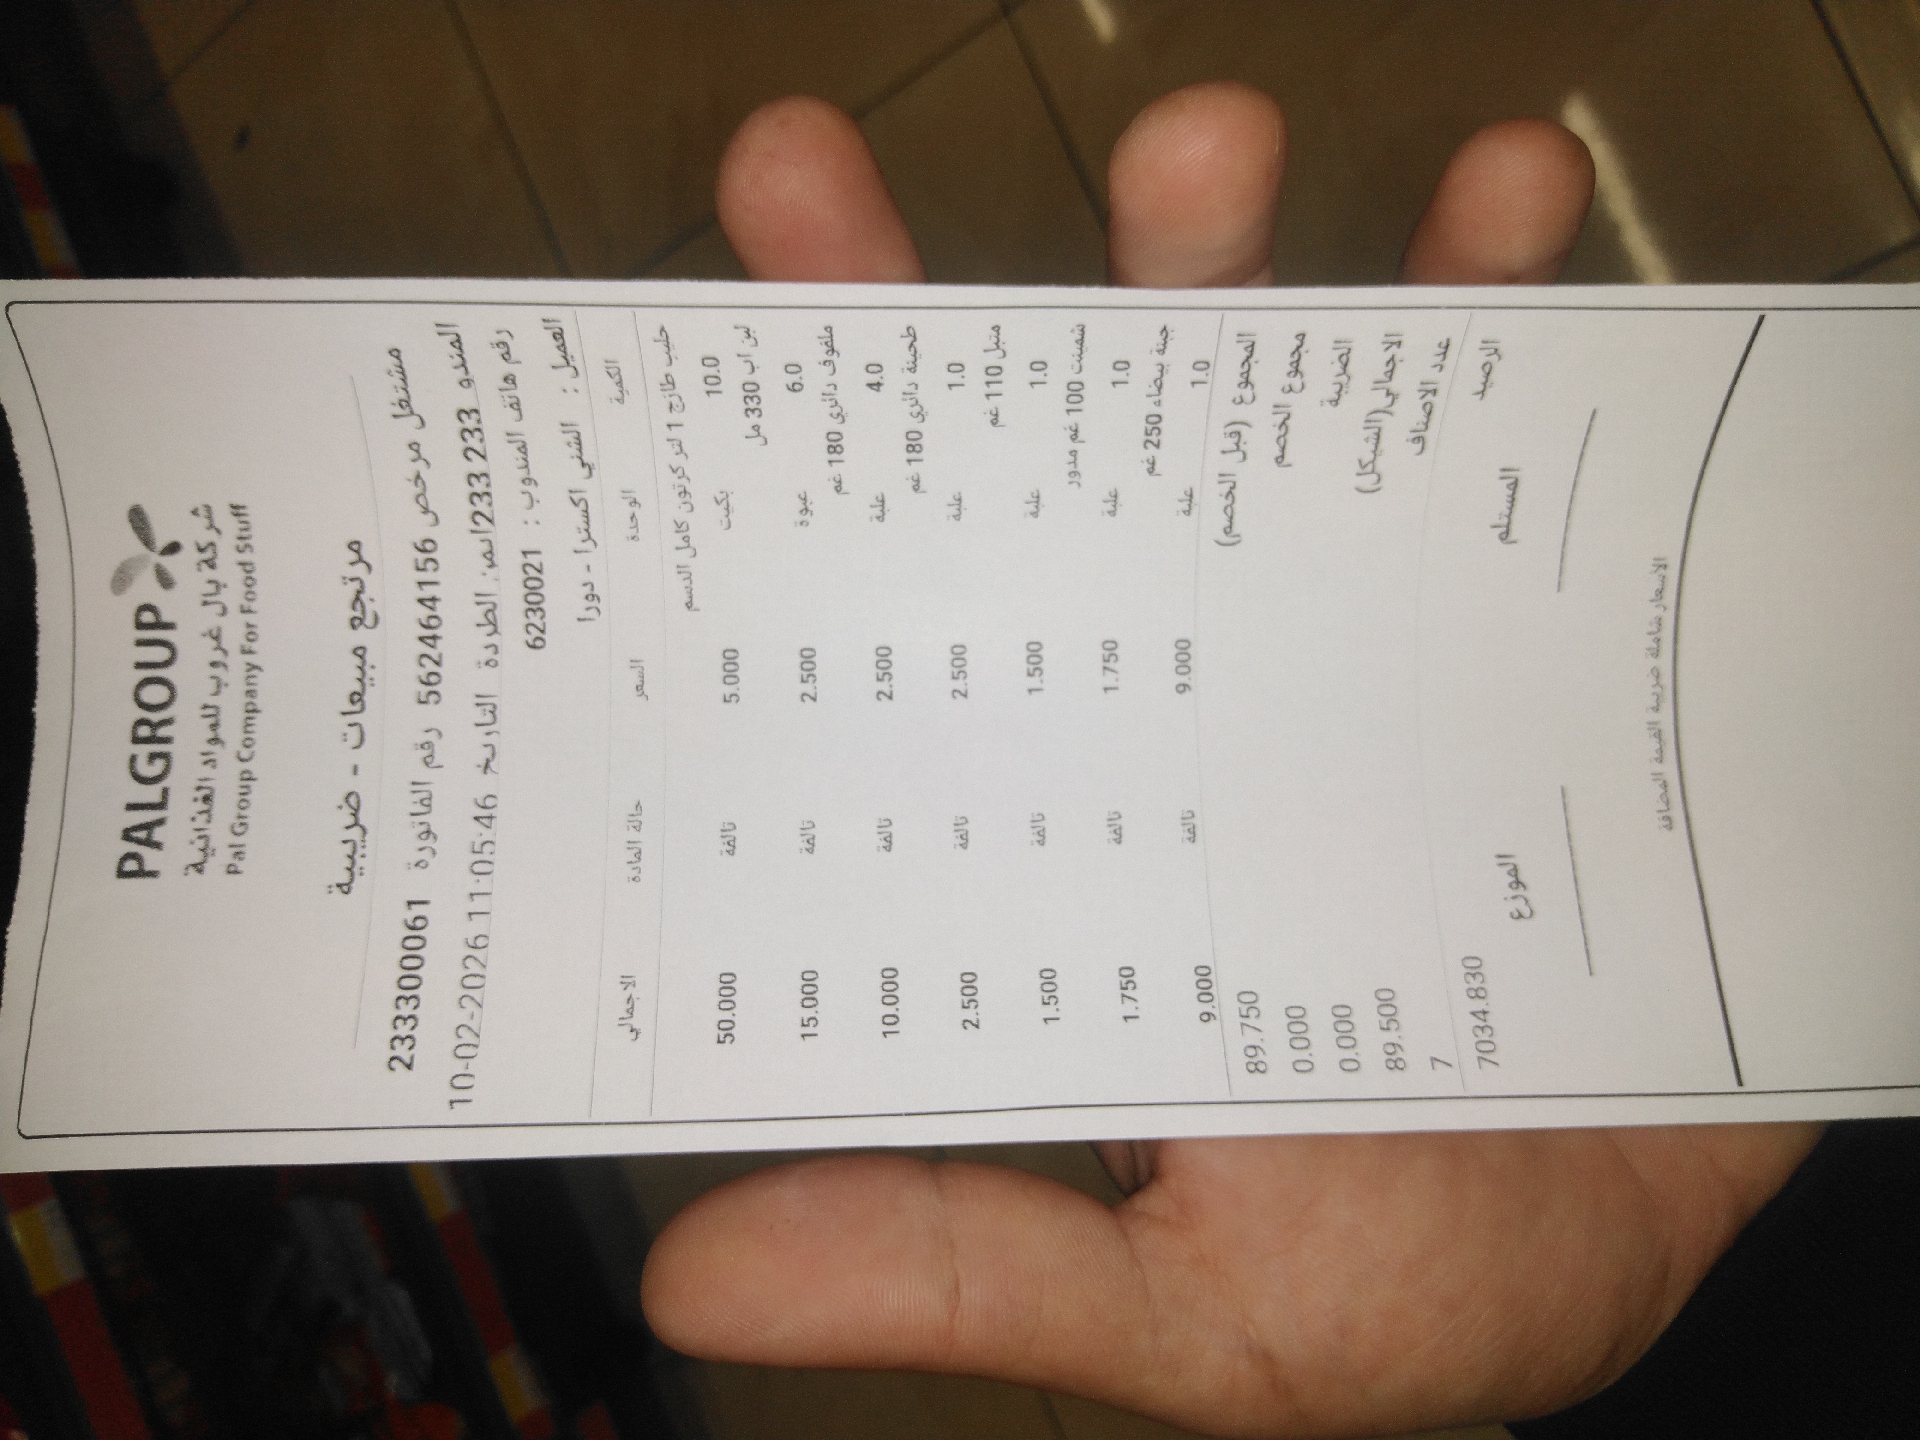 PALGROUP
شركة بال غروب للمواد الغذائية
Pal Group Company For Food Stuff
مرتجع مبيعات - ضريبية
مشتغل مرخص 562464156 رقم الفاتورة 233300061
المندو 233 233 الطردة التاريخ 10-02-2026 11:05:46
رقم هاتف المندوب : 6230021
العميل : الشني اكسترا - دورا
الكمية الوحدة السعر حالة المادة الاجمالي
حليب طازج 1 لتر كرتون كامل الدسم
10.0 بكيت 5.000 تالفة 50.000
لبن اب 330 مل
6.0 عبوة 2.500 تالفة 15.000
ملفوف دالري 180 غم
4.0 علبة 2.500 تالفة 10.000
طحينة دالري 180 غم
1.0 علبة 2.500 تالفة 2.500
متبل 110 غم
1.0 علبة 1.500 تالفة 1.500
شمينت 100 غم مدور
1.0 علبة 1.750 تالفة 1.750
جبنة بيضاء 250 غم
1.0 علبة 9.000 تالفة 9.000
المجموع (قبل الخصم) 89.750
مجموع الخصم 0.000
الضريبة 0.000
الاجمالي(الشيكل) 89.500
عدد الاصناف 7
الرصيد 7034.830
المستلم الموزع
الاسعار شاملة ضريبة القيمة المضافة